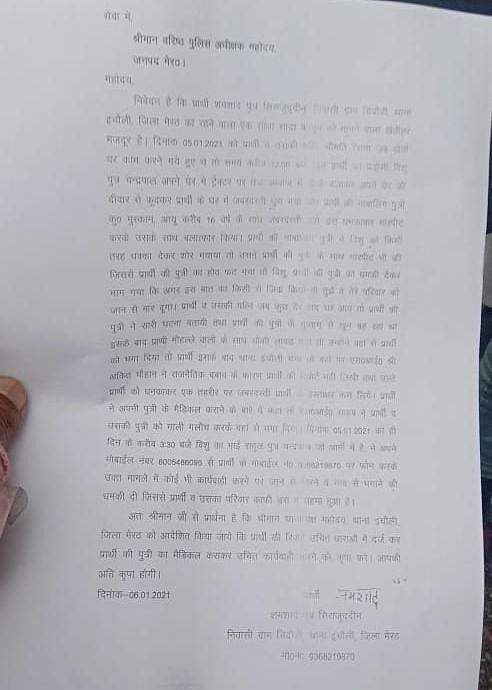 सेवा में,
श्रीमान वरिष्ठ पुलिस अधीक्षक महोदय,
जनपद मेरठ।
महोदय,
निवेदन है कि प्रार्थी शमशाद पुत्र सिराजुद्दीन निवासी ग्राम सिदौली, थाना
इंचौली, जिला मेरठ का रहने वाला एक सीधा सादा कानून को मानने वाला खेतिहर
मजदूर है। दिनांक 05.01.2021 को प्रार्थी व उसकी पत्नि श्रीमति
पर काम करने गये हुए थे तो समय करीब 12:00 बजे प्रार्थी का पड़ोसी विशु
पुत्र चन्द्रपाल अपने घेर में ट्रैक्टर पर तेज आवाज में बजाकर अपने घेर की
दीवार से कूदकर प्रार्थी के घर में जबरदस्ती घुस गया और प्रार्थी की नाबालिग पुत्री
कु0 मुस्कान, आयु करीब 16 वर्ष के साथ जबरदस्ती डरा धमकाकर मारपीट
करके उसके साथ बलात्कार किया। प्रार्थी की नाबालिग पुत्री ने विशु को किसी
तरह धक्का देकर शोर मचाया तो उसने प्रार्थी की पुत्री के साथ मारपीट भी की
जिससे प्रार्थी की पुत्री का होंठ कट गया तो विशु, प्रार्थी की पुत्री को धमकी देकर
भाग गया कि अगर इस बात का किसी से जिक्र किया तो तुझे व तेरे परिवार को
जान से मार दूंगा। प्रार्थी व उसकी पत्नि जब कुछ देर बाद घर आये तो प्रार्थी की
पुत्री ने सारी घटना बतायी तथा प्रार्थी की पुत्री के गुप्तांग से खून बह रहा था
इसके बाद प्रार्थी मौहल्ले वालों के साथ चौकी लावड़ गया तो उन्होंने वहां से प्रार्थी
को भगा दिया तो प्रार्थी इसके बाद थाना इंचौली गया तो वहां पर एस0आई0 श्री
अंकित चौहान ने राजनैतिक दबाव के कारण प्रार्थी की रिपोर्ट नहीं लिखी तथा उल्टे
प्रार्थी को धमकाकर एक तहरीर पर जबरदस्ती प्रार्थी के हस्ताक्षर करा लिये। प्रार्थी
ने अपनी पुत्री के मैडिकल कराने के बारे में कहा तो एस0आई0 साहब ने प्रार्थी व
उसकी पुत्री को गाली गलौच करके वहां से भगा दिया। दिनांक 05.01.2021 को ही
दिन के करीब 3:30 बजे विशु का भाई राहुल पुत्र चन्द्रपाल जो आर्मी में है, ने अपने
मोबाईल नंबर 8005486095 से प्रार्थी के मोबाईल नं0 9368219870 पर फोन करके
उक्त मामले में कोई भी कार्यवाही करने पर जान से मारने व गांव से भगाने की
धमकी दी जिससे प्रार्थी व उसका परिवार काफी डरा व सहमा हुआ है।
अतः श्रीमान जी से प्रार्थना है कि श्रीमान थानाध्यक्ष महोदय, थाना इंचौली,
जिला मेरठ को आदेशित किया जाये कि प्रार्थी की रिपोर्ट उचित धाराओं में दर्ज कर
प्रार्थी की पुत्री का मैडिकल कराकर उचित कार्यवाही करने की कृपा करें। आपकी
अति कृपा होगी।
दिनांक–06.01.2021
प्रार्थी शमशाद
शमशाद पुत्र सिराजुद्दीन
निवासी ग्राम सिदौली, थाना इंचौली, जिला मेरठ
मो0नं0 9368219870